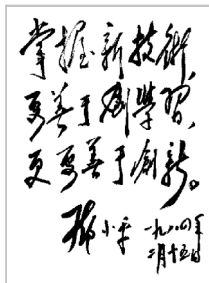 掌握新技術，
要善于學習、
更要善于創新。
鄧小平
一九八四年
二月十五日